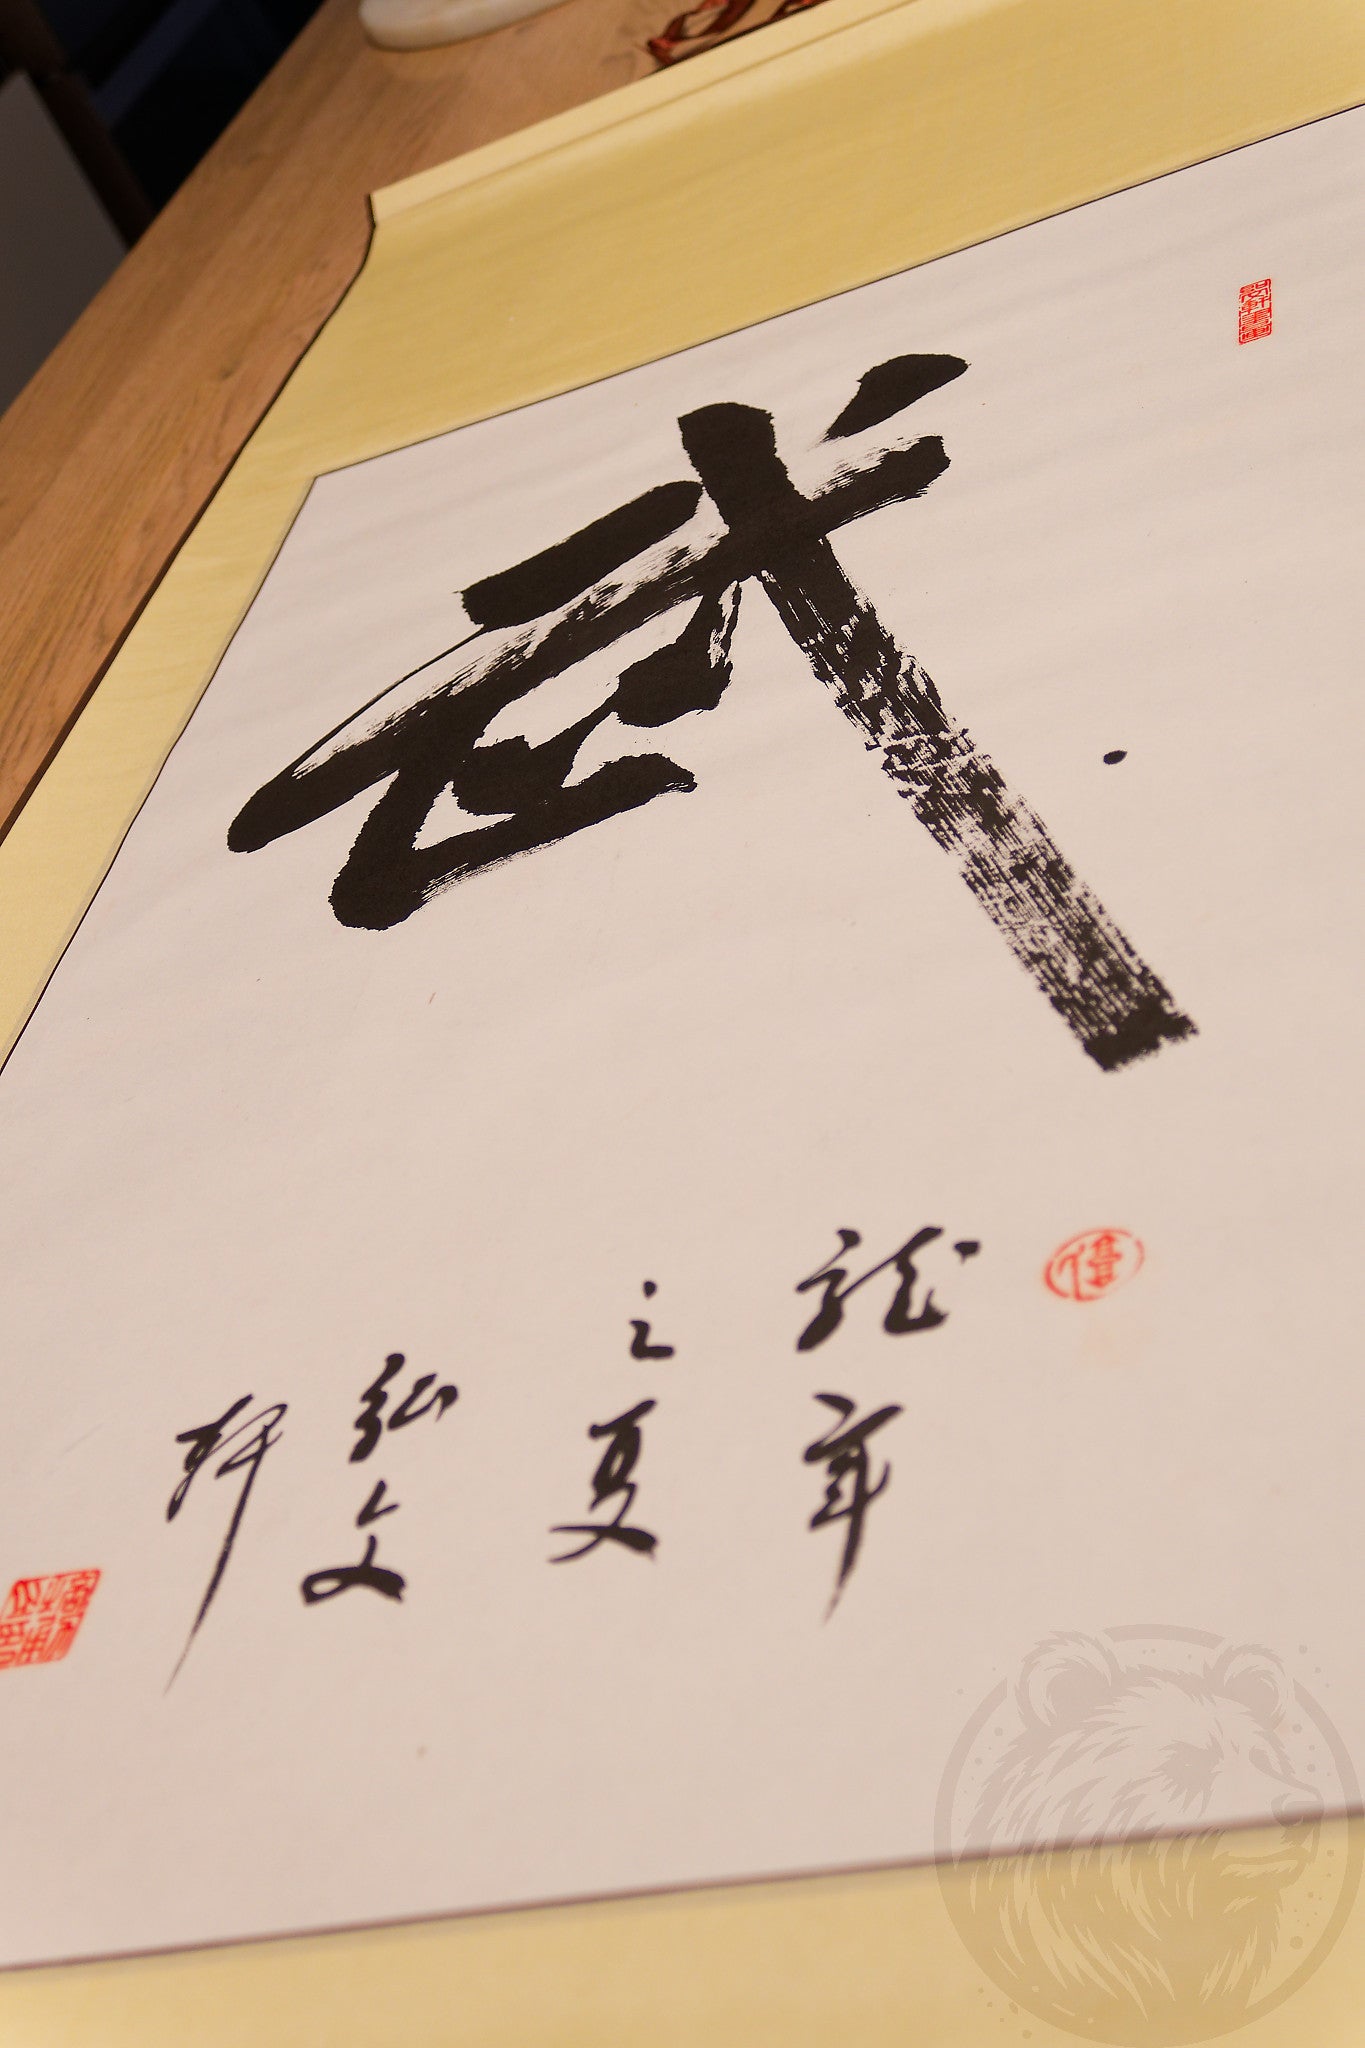 武
龍年
之夏
弘文
軒